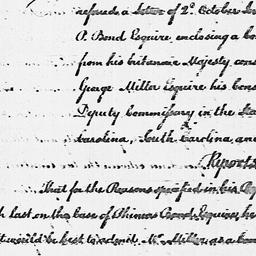 referred a letter of 2d. October
P. Bond Esquire enclosing a
from his britanic Majesty
George Miller Esquire his Cons
Deputy Commissary in the
Carolina, South Carolina, and
Reports
That for the Reasons specified in his
last on the Case of Phineas Bond Esquire, he
it would be best to admit Mr. Miller as a